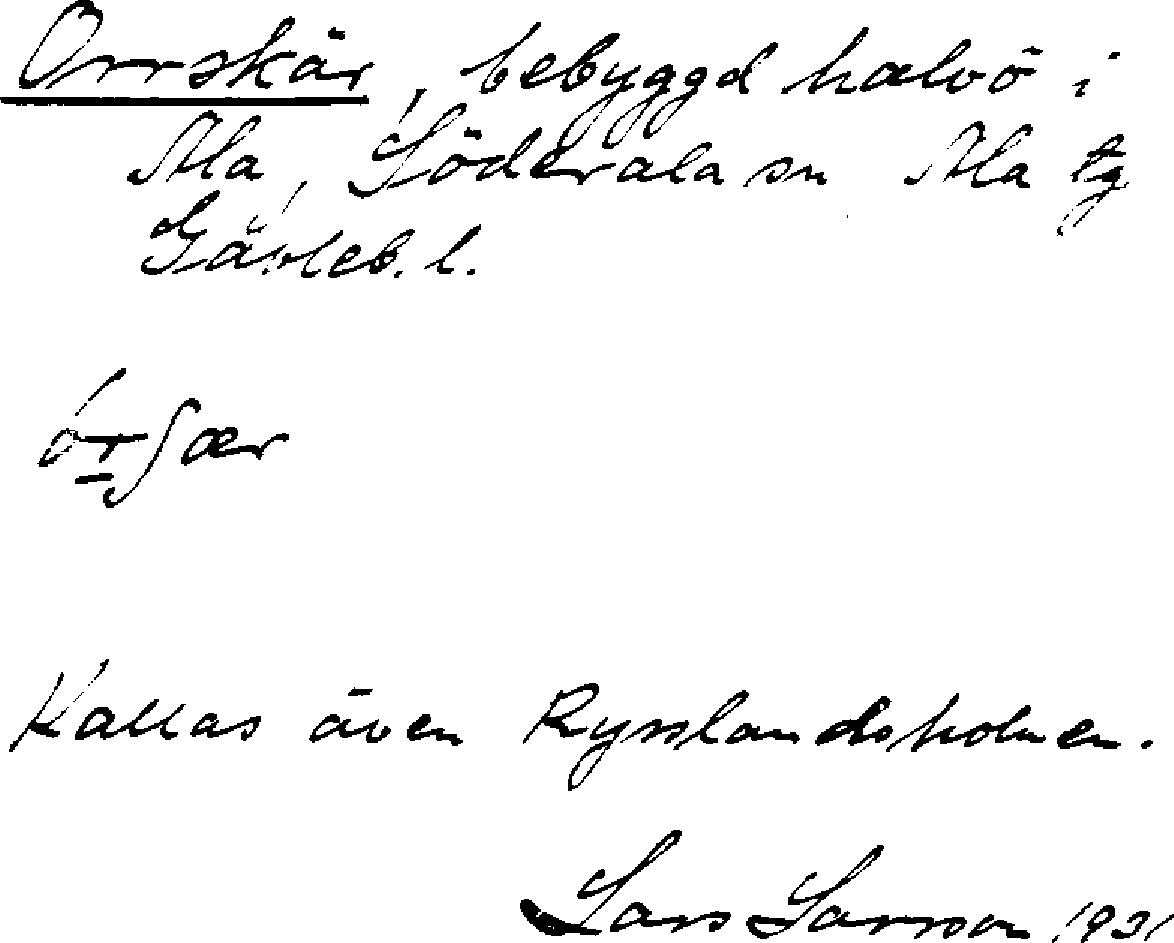 Orrskär, bebyggd halvö i
Ala, Söderala sn Ala tg
Gävleb. l.
Kallas även Rysslandsholmen.
Lars Larsson 1931